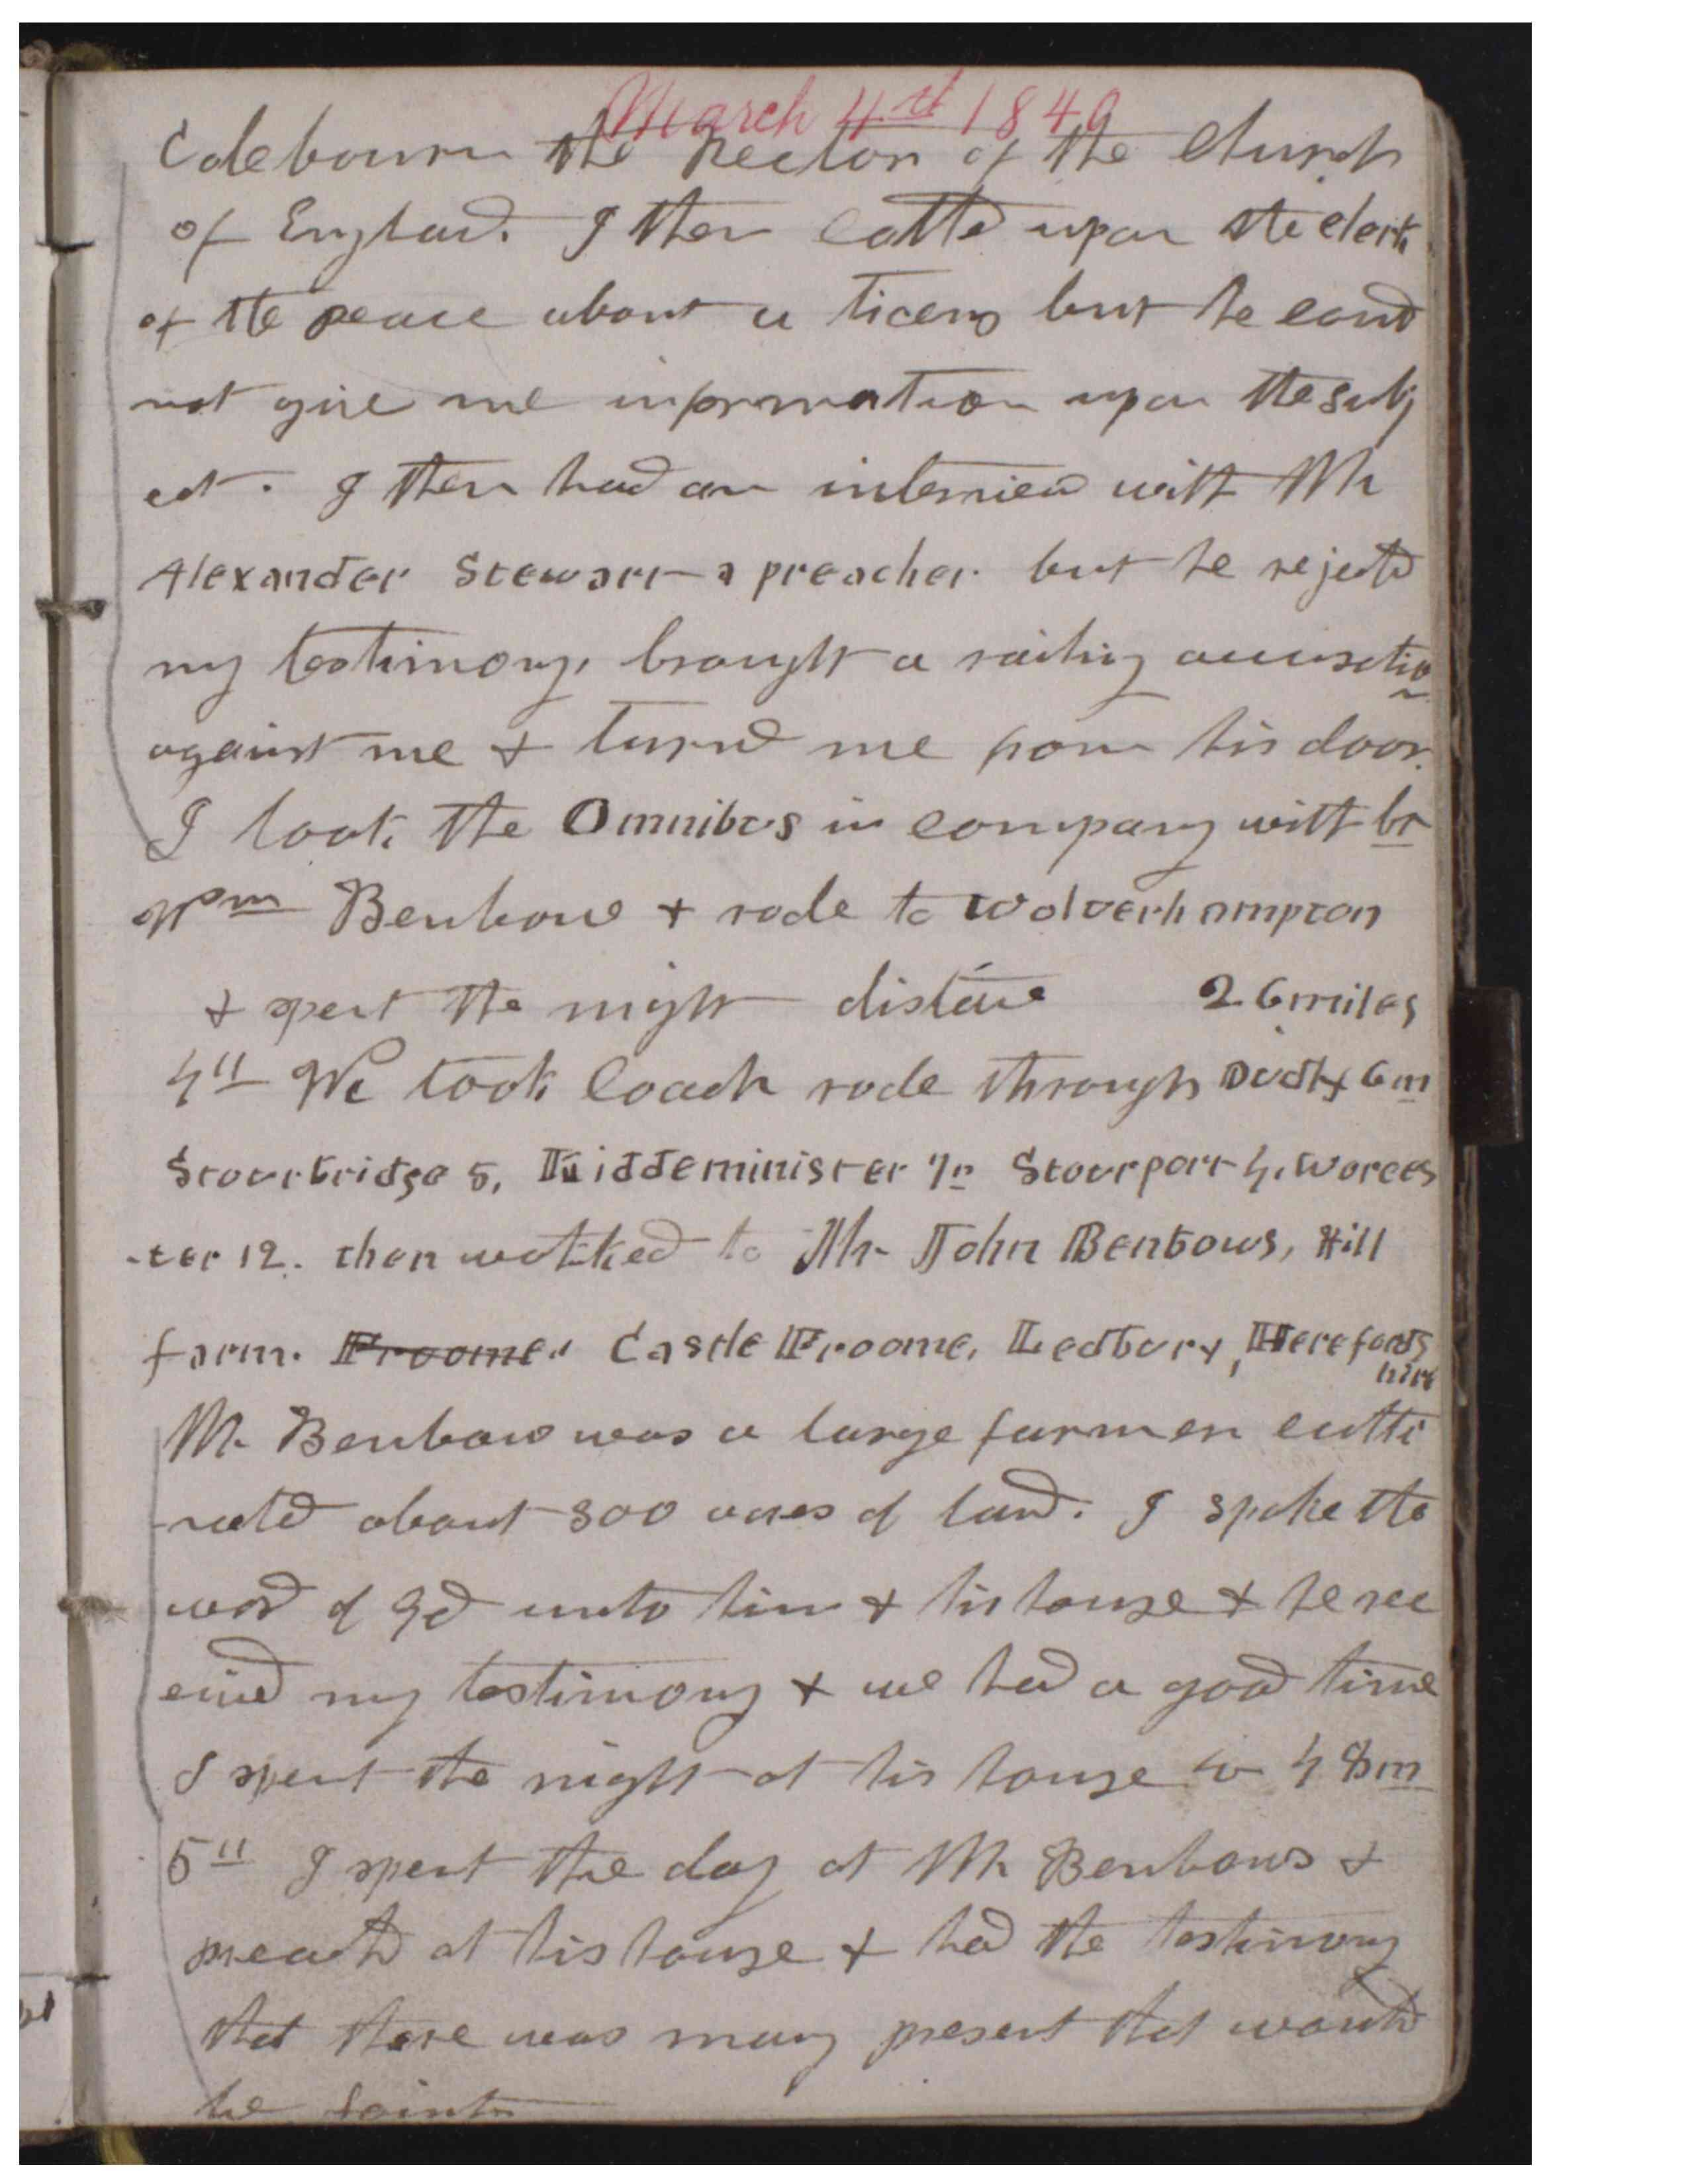 March 4th 1840
Colebourn the Rector of the Church
of England. I then called upon the clerk
of the peace about a licens but he could
not give me information upon the subj
ect. I then had an interview with Mr
Alexander Stewart a preacher but he rejected
my testimony, brought a railing accusation
against me & turned me from his door.
I took the Omnibus in company with br
Wm Benbow & rode to Wolverhampton
& spent the night distance 26 miles
4th We took Coach rode through Dudly 6 m
Stourbridge 5, Kiddeminister 7n Stourport 4, Worces
-ter 12. then walked to Mr John Benbows, Hill
farm. Froome. Castle Froome, Ledbury, Herefords
hire
Mr Benbow was a large farmer culti
vated about 300 acres of land. I spoke the
word of God unto him & his house & he rec
eived my testimony & we had a good time
I spent the night at his house 48 m
5th I spent the day at Mr Benbows &
preached at his house & had the testimony
that there was many present that would
be Saints